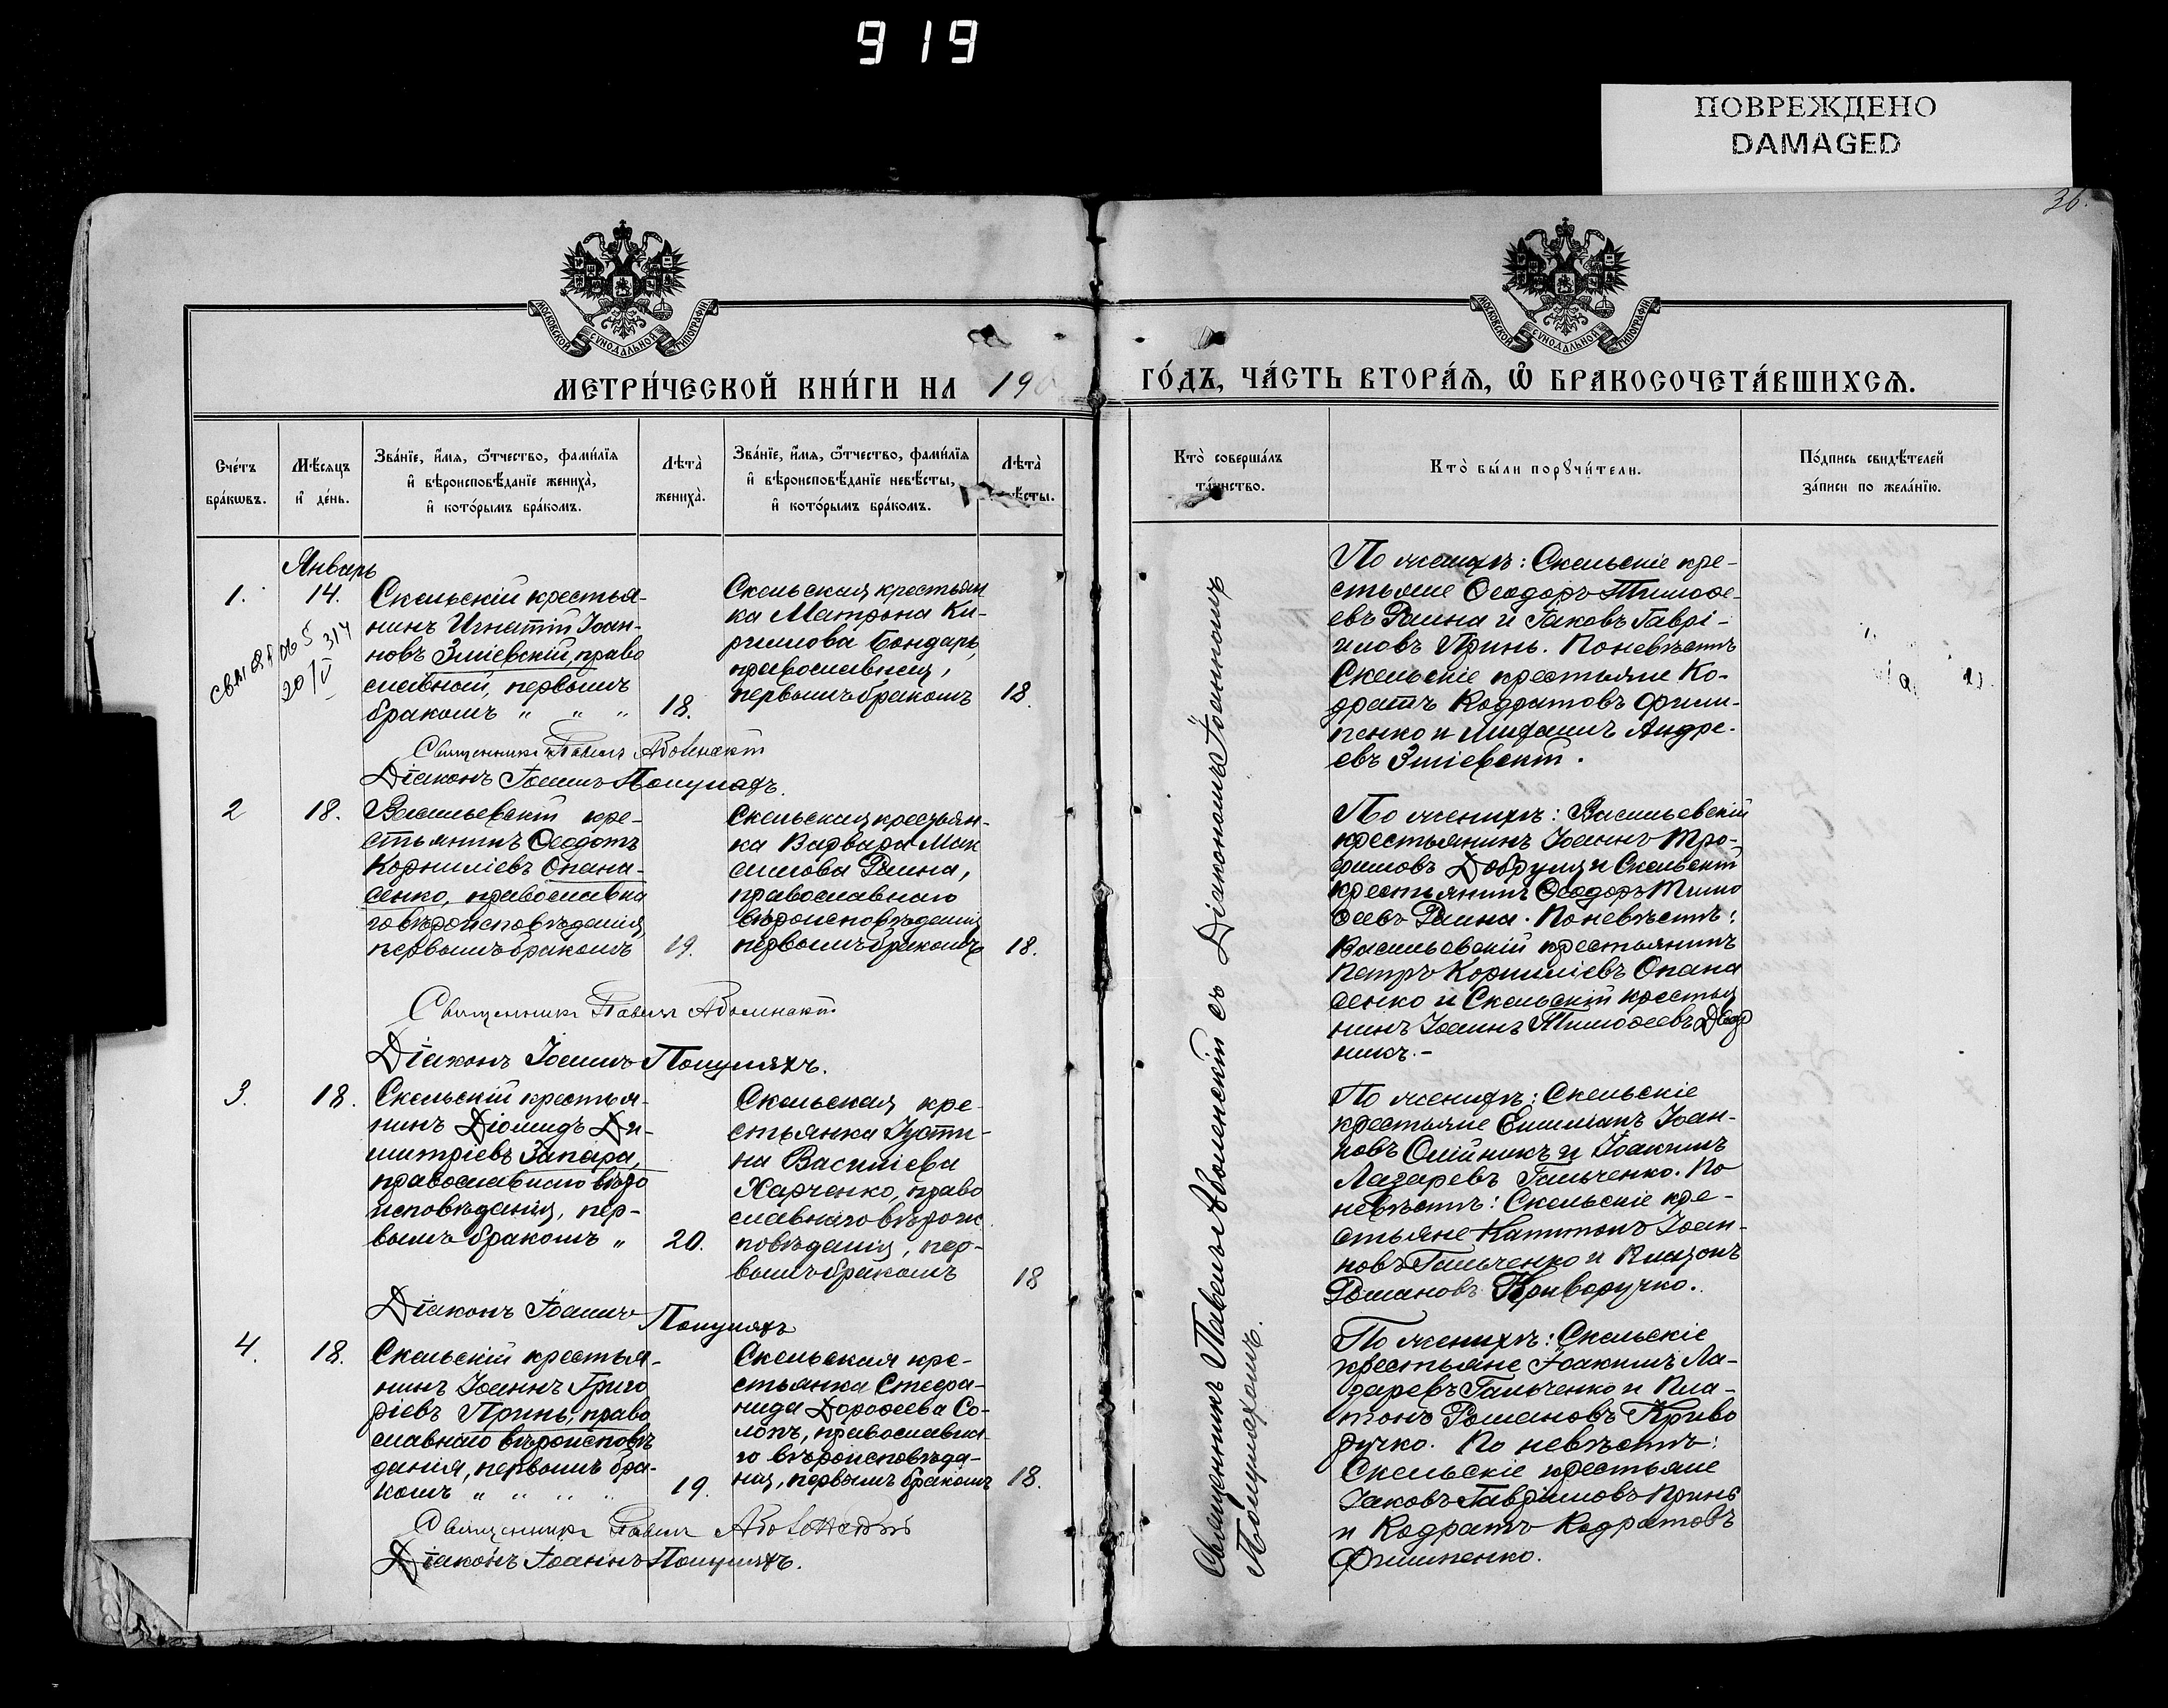 919
ПОВРЕЖДЕНО
DAMAGED
36.
МОСКОВСКОЙ СѴНОДАЛЬНОЙ ТИПОГРАФІИ
МОСКОВСКОЙ СѴНОДАЛЬНОЙ ТИПОГРАФІИ
МЕТРИ́ЧЕСКОЙ КНИ́ГИ НА 190
ГО́ДЪ, ЧА́СТЬ ВТОРА́Ѧ, Ѽ БРАКОСОЧЕТА́ВШИХСѦ.
Сче́тъ
бра́кѡвъ.
Мѣ́сяцъ
и҆ де́нь.
Зва́нїе, и҆́мя, ѻ҆́тчество, фами́лїя
и҆ вѣроисповѣ́данїе жениха̀,
и҆ кото́рымъ бра́комъ.
Лѣта̀
жениха̀.
Зва́нїе, и҆́мя, ѻ҆́тчество, фами́лїя
и҆ вѣроисповѣ́данїе невѣ́сты,
и҆ кото́рымъ бра́комъ.
Лѣта̀
ѣсты.
Кто̀ соверша́лъ
та́инство.
Кто̀ бы́ли порꙋчи́тели.
По́дпись свидѣ́телей
за́писи по жела́нїю.
Январь
1.
14.
Скельскій крестья-
нинъ Игнатій Іоан-
новъ Зміевскій, право
славный, первымъ
бракомъ " " "
18.
Скельская крестьян
ка Матрона Ки-
рилова Бондарь,
православная,
первымъ бракомъ
18.
314
20/V
Священникъ Павелъ Аволенскій
Діаконъ Іоаннъ Популяхъ.
По женихѣ: Скельскіе кре-
стьяне Ѳеодоръ Тимоѳе-
евъ Раина и Іаковъ Гаврі-
иловъ Принь. По невѣстѣ
Скельскіе крестьяне Ко-
дратъ Кодратовъ Фили-
пенко и Михаилъ Андре-
евъ Зміевскій.
2
18.
Васильевскій кре-
стьянинъ Ѳеодотъ
Корниліевъ Опана-
сенко, православна
го вѣроисповѣданія,
первымъ бракомъ
19.
Скельская крестьян-
ка Варвара Мак
симова Раина,
православнаго
вѣроисповѣданія
первымъ бракомъ
18.
Священникъ Павелъ Аволенскій
Діаконъ Іоаннъ Популяхъ.
По женихѣ: Васильевскій
крестьянинъ Іоаннъ Тро-
фимовъ Добруля и Скельскій
крестьянинъ Ѳеодоръ Тимо
ѳеевъ Раина. По невѣстѣ:
Васильевскій крестьянинъ
Петръ Корниліевъ Опана
сенко и Скельскій крестья
нинъ Іоаннъ Тимоѳеевъ Двор
никъ.-
3.
18.
Скельскій крестья-
нинъ Діомидъ Ди-
митріевъ Запара,
православнаго вѣро
исповѣданія, пер-
вымъ бракомъ "
20.
Скельская кре-
стьянка Іусти-
на Василіева
Харченко, право
славнаго вѣроис
повѣданія, пер-
вымъ бракомъ
18
Діаконъ Іоаннъ Популяхъ
По женихѣ: Скельскіе
крестьяне Емиліанъ Іоан-
новъ Олійникъ и Іоакимъ
Лазаревъ Гальченко. По
невѣстѣ: Скельскіе кре-
стьяне Капитонъ Іоан-
новъ Гальченко и Платонъ
Романовъ Криворучко.
4.
18.
Скельскій крестья-
нинъ Іоаннъ Григо
ріевъ Принь, право
славнаго вѣроисповѣ
данія, первымъ бра-
комъ " " " "
19.
Скельская кре-
стьянка Стефа-
нида Дороѳеева Со-
лопъ, православна-
го вѣроисповѣда-
нія, первымъ бракомъ
18.
Священникъ Павелъ Аволенскій
Діаконъ Іоаннъ Популяхъ.
По женихѣ: Скельскіе
крестьяне Іоакимъ Ла-
заревъ Гальченко и Пла-
тонъ Романовъ Криво
ручко. По невѣстѣ:
Скельскіе крестьяне
Іаковъ Гавріиловъ Принь
и Кодратъ Кодратовъ
Филипенко.
Священникъ Павелъ Аволенскій съ Діакономъ Іоанномъ
Популяхомъ.